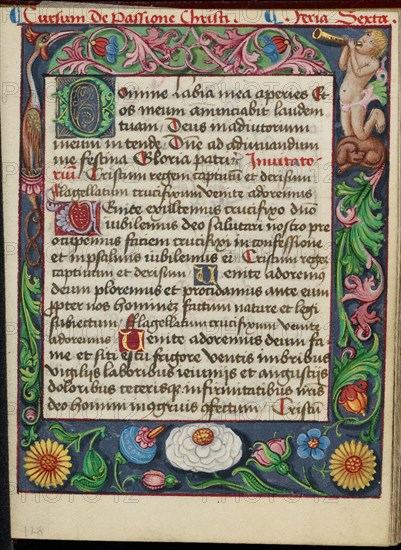 Cursum De Passione Christi. Feria Sexta.
Domine labia mea aperies Et
os meum annunciabit laudem
tuam. Deus in adiutorium
meum intende Dne ad adiuuandum
me festina Gloria patri Inuitato-
rium Cristum regem captum et derisum
flagellatum crucifixum venite adoremus
Venite exultemus crucifixo duo
iubilemus deo salutari nostro pre
occupemus faciem crucifixi in confessione
et in psalmis iubilemus ei Cristum rege
captum et derisum Venite adoremus
deum ploremus et procidamus ante eum
propter nos homines factum nature et legi
subiectum flagellatum crucifixum venite
adoremus Venite adoremus deum fa-
me et siti estu frigore ventis imbribus
vigilijs laboribus ieiunijs et angustijs
doloribus ceterisque infirmitatibus nris
deo hominum affectum Cristu
128